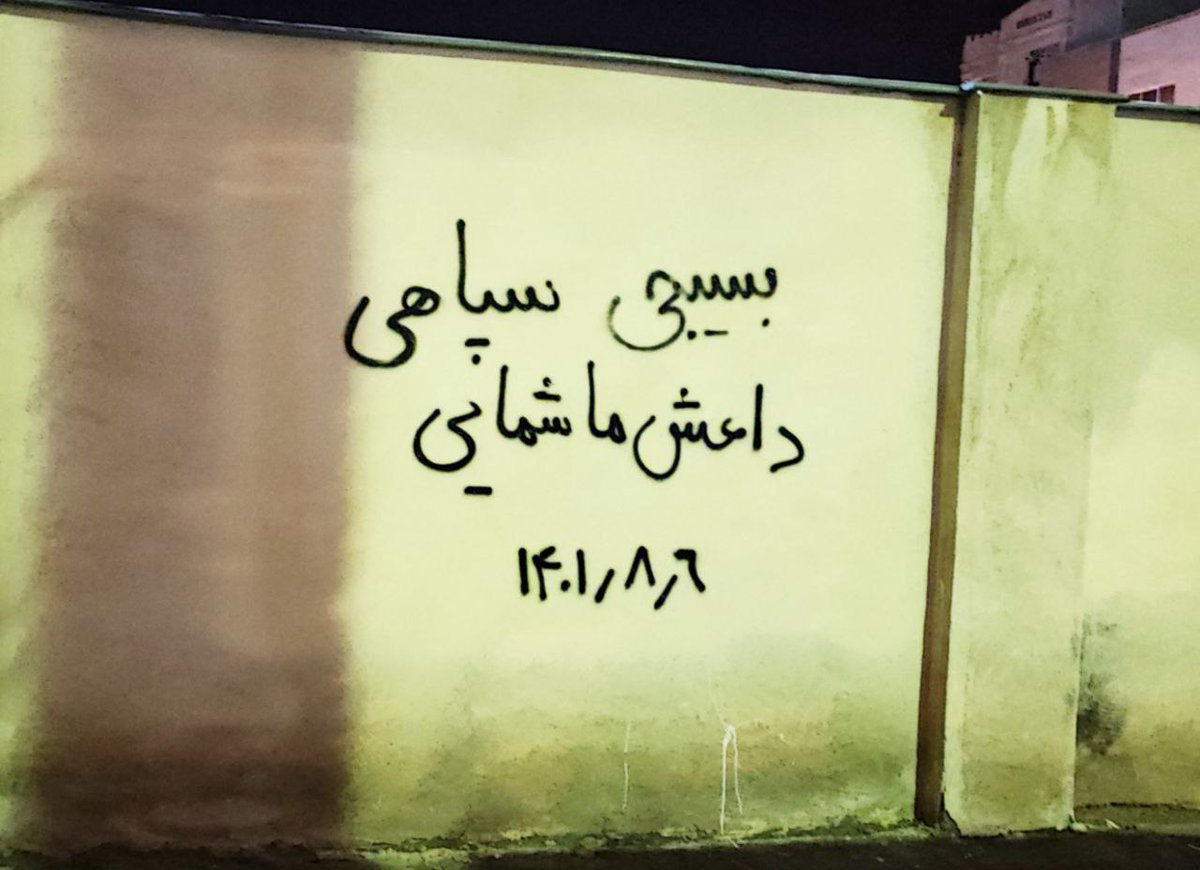 بسیجی سپاهی
داعش ما شمایی
۱۴۰۱/۸/۶